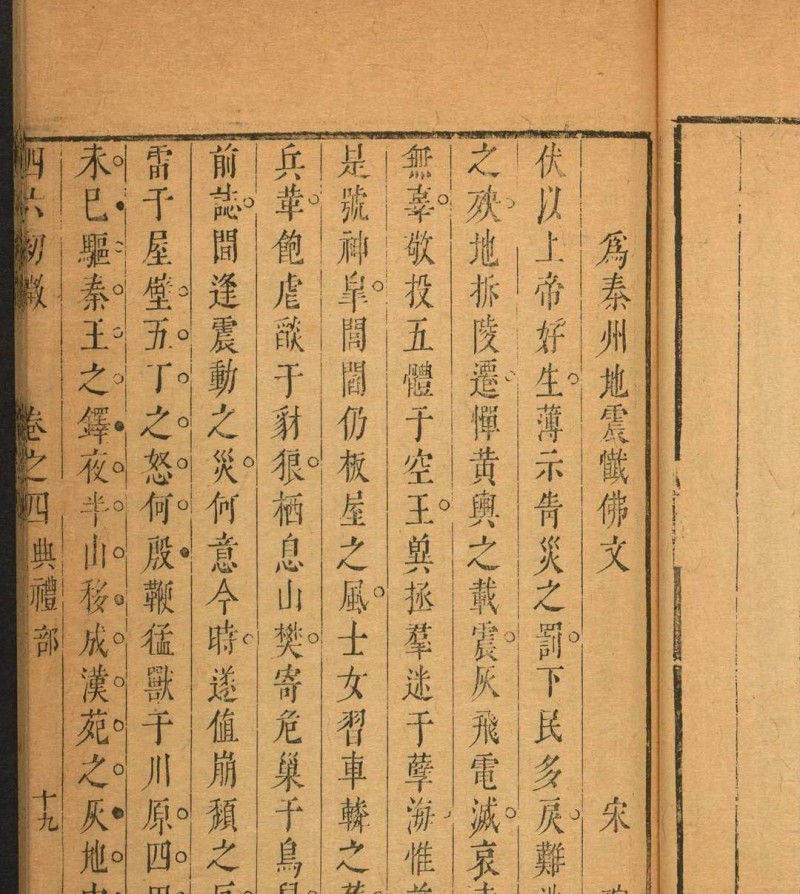 為秦州地震懺佛文 宋
伏以上帝好生薄示眚災之罰下民多戾難
之殃地拆陵遷憚黃輿之載震灰飛電滅哀
無辜敬投五體于空王冀拯羣迷于孽海惟
是號神臯閭閻仍板屋之風士女習車轔之
兵革飽虐燄于豺狼栖息山樊寄危巢于鳥
前誌間逢震動之災何意今時遂值崩頹之
雷于屋壁五丁之怒何殷鞭猛獸于川原四
未巳驅秦王之鐸夜半山移成漢苑之灰地
四六初徵 卷之四 典禮部 十九